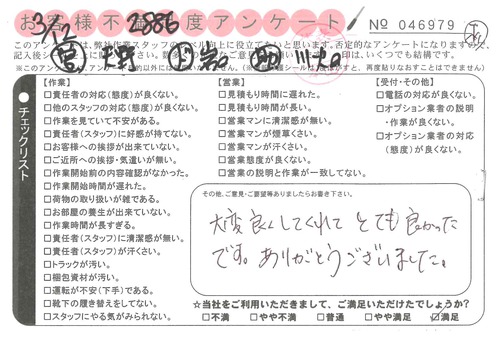 お客様不満度アンケート
3/12 2886
№ 046979
このアンケートは、弊社作業スタッフの
※このアンケート
チェックリスト
【作業】
□責任者の対応(態度)が良くない。
□他のスタッフの対応(態度)が良くない。
□作業を見ていて不安がある。
□責任者(スタッフ)に好感が持てない。
□お客様への挨拶が出来ていない。
□ご近所への挨拶・気遣いが無い。
□作業開始前の内容確認がなかった。
□作業開始時間が遅れた。
□荷物の取り扱いが雑である。
□お部屋の養生が出来ていない。
□作業時間が長すぎる。
□責任者(スタッフ)に清潔感が無い。
□責任者(スタッフ)が汗くさい。
□トラックが汚い。
□梱包資材が汚い。
□運転が不安(下手)である。
□靴下の履き替えをしてない。
□スタッフにやる気がみられない。
【営業】
□見積もり時間に遅れた。
□見積もり時間が長い。
□営業マンに清潔感が無い。
□営業マンが煙草くさい。
□営業マンが汗くさい。
□営業態度が良くない。
□営業の説明と作業が一致してない。
【受付・その他】
□電話の対応が良くない。
□オプション業者の説明
・作業が良くない。
□オプション業者の対応
(態度)が良くない。
その他、ご意見・ご要望等ありましたらお書き下さい。
大変良くしてくれて とても良かった
です。ありがとうございました。
☆当社をご利用いただきまして、ご満足いただけたでしょうか?
□不満 □やや不満 □普通 □やや満足 ☑満足